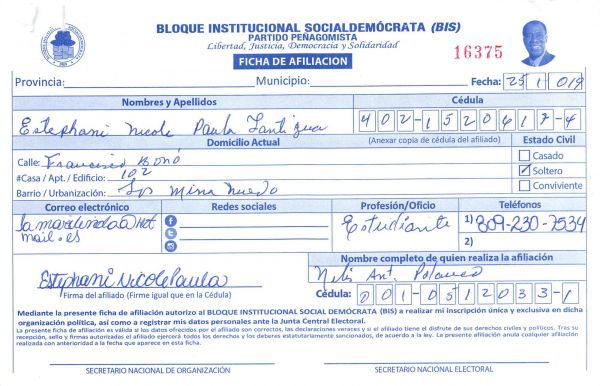 BLOQUE INSTITUCIONAL SOCIALDEMÓCRATA (BIS)
PARTIDO PEÑAGOMISTA
Libertad, Justicia, Democracia y Solidaridad
16375
FICHA DE AFILIACION
Provincia: Municipio: Fecha: 25/1/019
Nombres y Apellidos Cédula
Estephani Nicole Paula Santigua 402-1520617-4
Domicilio Actual (Anexar copia de cédula del afiliado) Estado Civil
Calle: Francisco Bonó Casado
#Casa / Apt. / Edificio: 102 Soltero
Barrio / Urbanización: Los Mina Nuevo Conviviente
Correo electrónico Redes sociales Profesión/Oficio Teléfonos
lamardendoa@Hot Estudiante 1) 809-230-7534
mail.es 2)
Nombre completo de quien realiza la afiliación
Estephani Nicole Paula Nelis Ant. Polanco
Firma del afiliado (Firme igual que en la Cédula) Cédula: 001-0512033-1
Mediante la presente ficha de afiliación autorizo al BLOQUE INSTITUCIONAL SOCIAL DEMÓCRATA (BIS) a realizar mi inscripción única y exclusiva en dicha
organización política, así como a registrar mis datos personales ante la Junta Central Electoral.
La presente ficha de afiliación es válida si los datos ofrecidos por el afiliado son correctos, las declaraciones veraces y si el afiliado tiene el disfrute de sus derechos civiles y políticos. Tras su
recepción, sello y firmas autorizadas el afiliado ejercerá todos los derechos y los deberes estatutariamente sancionados, de acuerdo a la ley. La presente afiliación anula cualquier afiliación
realizada con anterioridad a la fecha que aparece en esta ficha.
SECRETARIO NACIONAL DE ORGANIZACIÓN SECRETARIO NACIONAL ELECTORAL